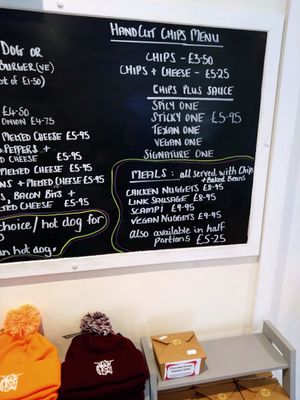 HANDCUT CHIPS MENU
CHIPS - £3·50
CHIPS + CHEESE - £5·25
CHIPS PLUS SAUCE
SPICY ONE
STICKY ONE £5·95
TEXAN ONE
VEGAN ONE
SIGNATURE ONE
MEALS: all served with Chips
+ Baked Beans
CHICKEN NUGGETS £8·95
LINK SAUSAGE £8·95
SCAMPI £9·95
VEGAN NUGGETS £9·95
also available in half
portions £5·25
DOG OR
BURGER (VE)
OF £1·50)
£4·50
ONION £4·75
MELTED CHEESE £5·95
PEPPERS +
CHEESE £5·95
MELTED CHEESE £5·95
+ MELTED CHEESE £5·95
BACON BITS +
CHEESE £5·95
choice / hot dog for
hot dog